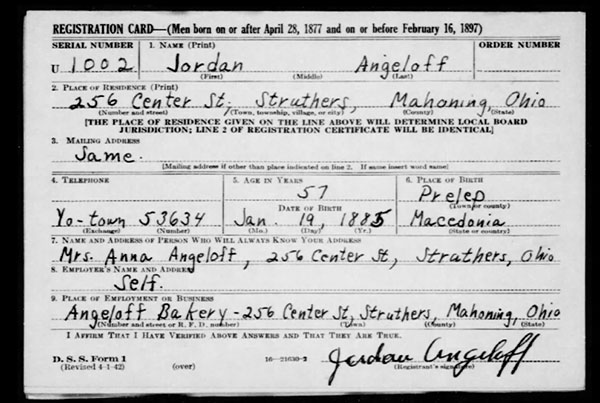 REGISTRATION CARD—(Men born on or after April 28, 1877 and on or before February 16, 1897)
SERIAL NUMBER 1. NAME (Print) ORDER NUMBER
U 1002 Jordan Angeloff
(First) (Middle) (Last)
2. PLACE OF RESIDENCE (Print)
256 Center St, Struthers, Mahoning, Ohio
(Number and street) (Town, township, village, or city) (County) (State)
[THE PLACE OF RESIDENCE GIVEN ON THE LINE ABOVE WILL DETERMINE LOCAL BOARD
JURISDICTION; LINE 2 OF REGISTRATION CERTIFICATE WILL BE IDENTICAL]
3. MAILING ADDRESS
Same.
[Mailing address if other than place indicated on line 2. If same insert word same]
4. TELEPHONE 5. AGE IN YEARS 6. PLACE OF BIRTH
57 Prelep
DATE OF BIRTH (Town or county)
Yo-town 53634 Jan. 19, 1885 Macedonia
(Exchange) (Number) (Mo.) (Day) (Yr.) (State or country)
7. NAME AND ADDRESS OF PERSON WHO WILL ALWAYS KNOW YOUR ADDRESS
Mrs. Anna Angeloff, 256 Center St, Struthers, Ohio
8. EMPLOYER'S NAME AND ADDRESS
Self.
9. PLACE OF EMPLOYMENT OR BUSINESS
Angeloff Bakery - 256 Center St, Struthers, Mahoning, Ohio
(Number and street or R. F. D. number) (Town) (County) (State)
I AFFIRM THAT I HAVE VERIFIED ABOVE ANSWERS AND THAT THEY ARE TRUE.
D. S. S. Form 1
(Revised 4-1-42) (over) 16—21630-2 Jordan Angeloff
(Registrant's signature)